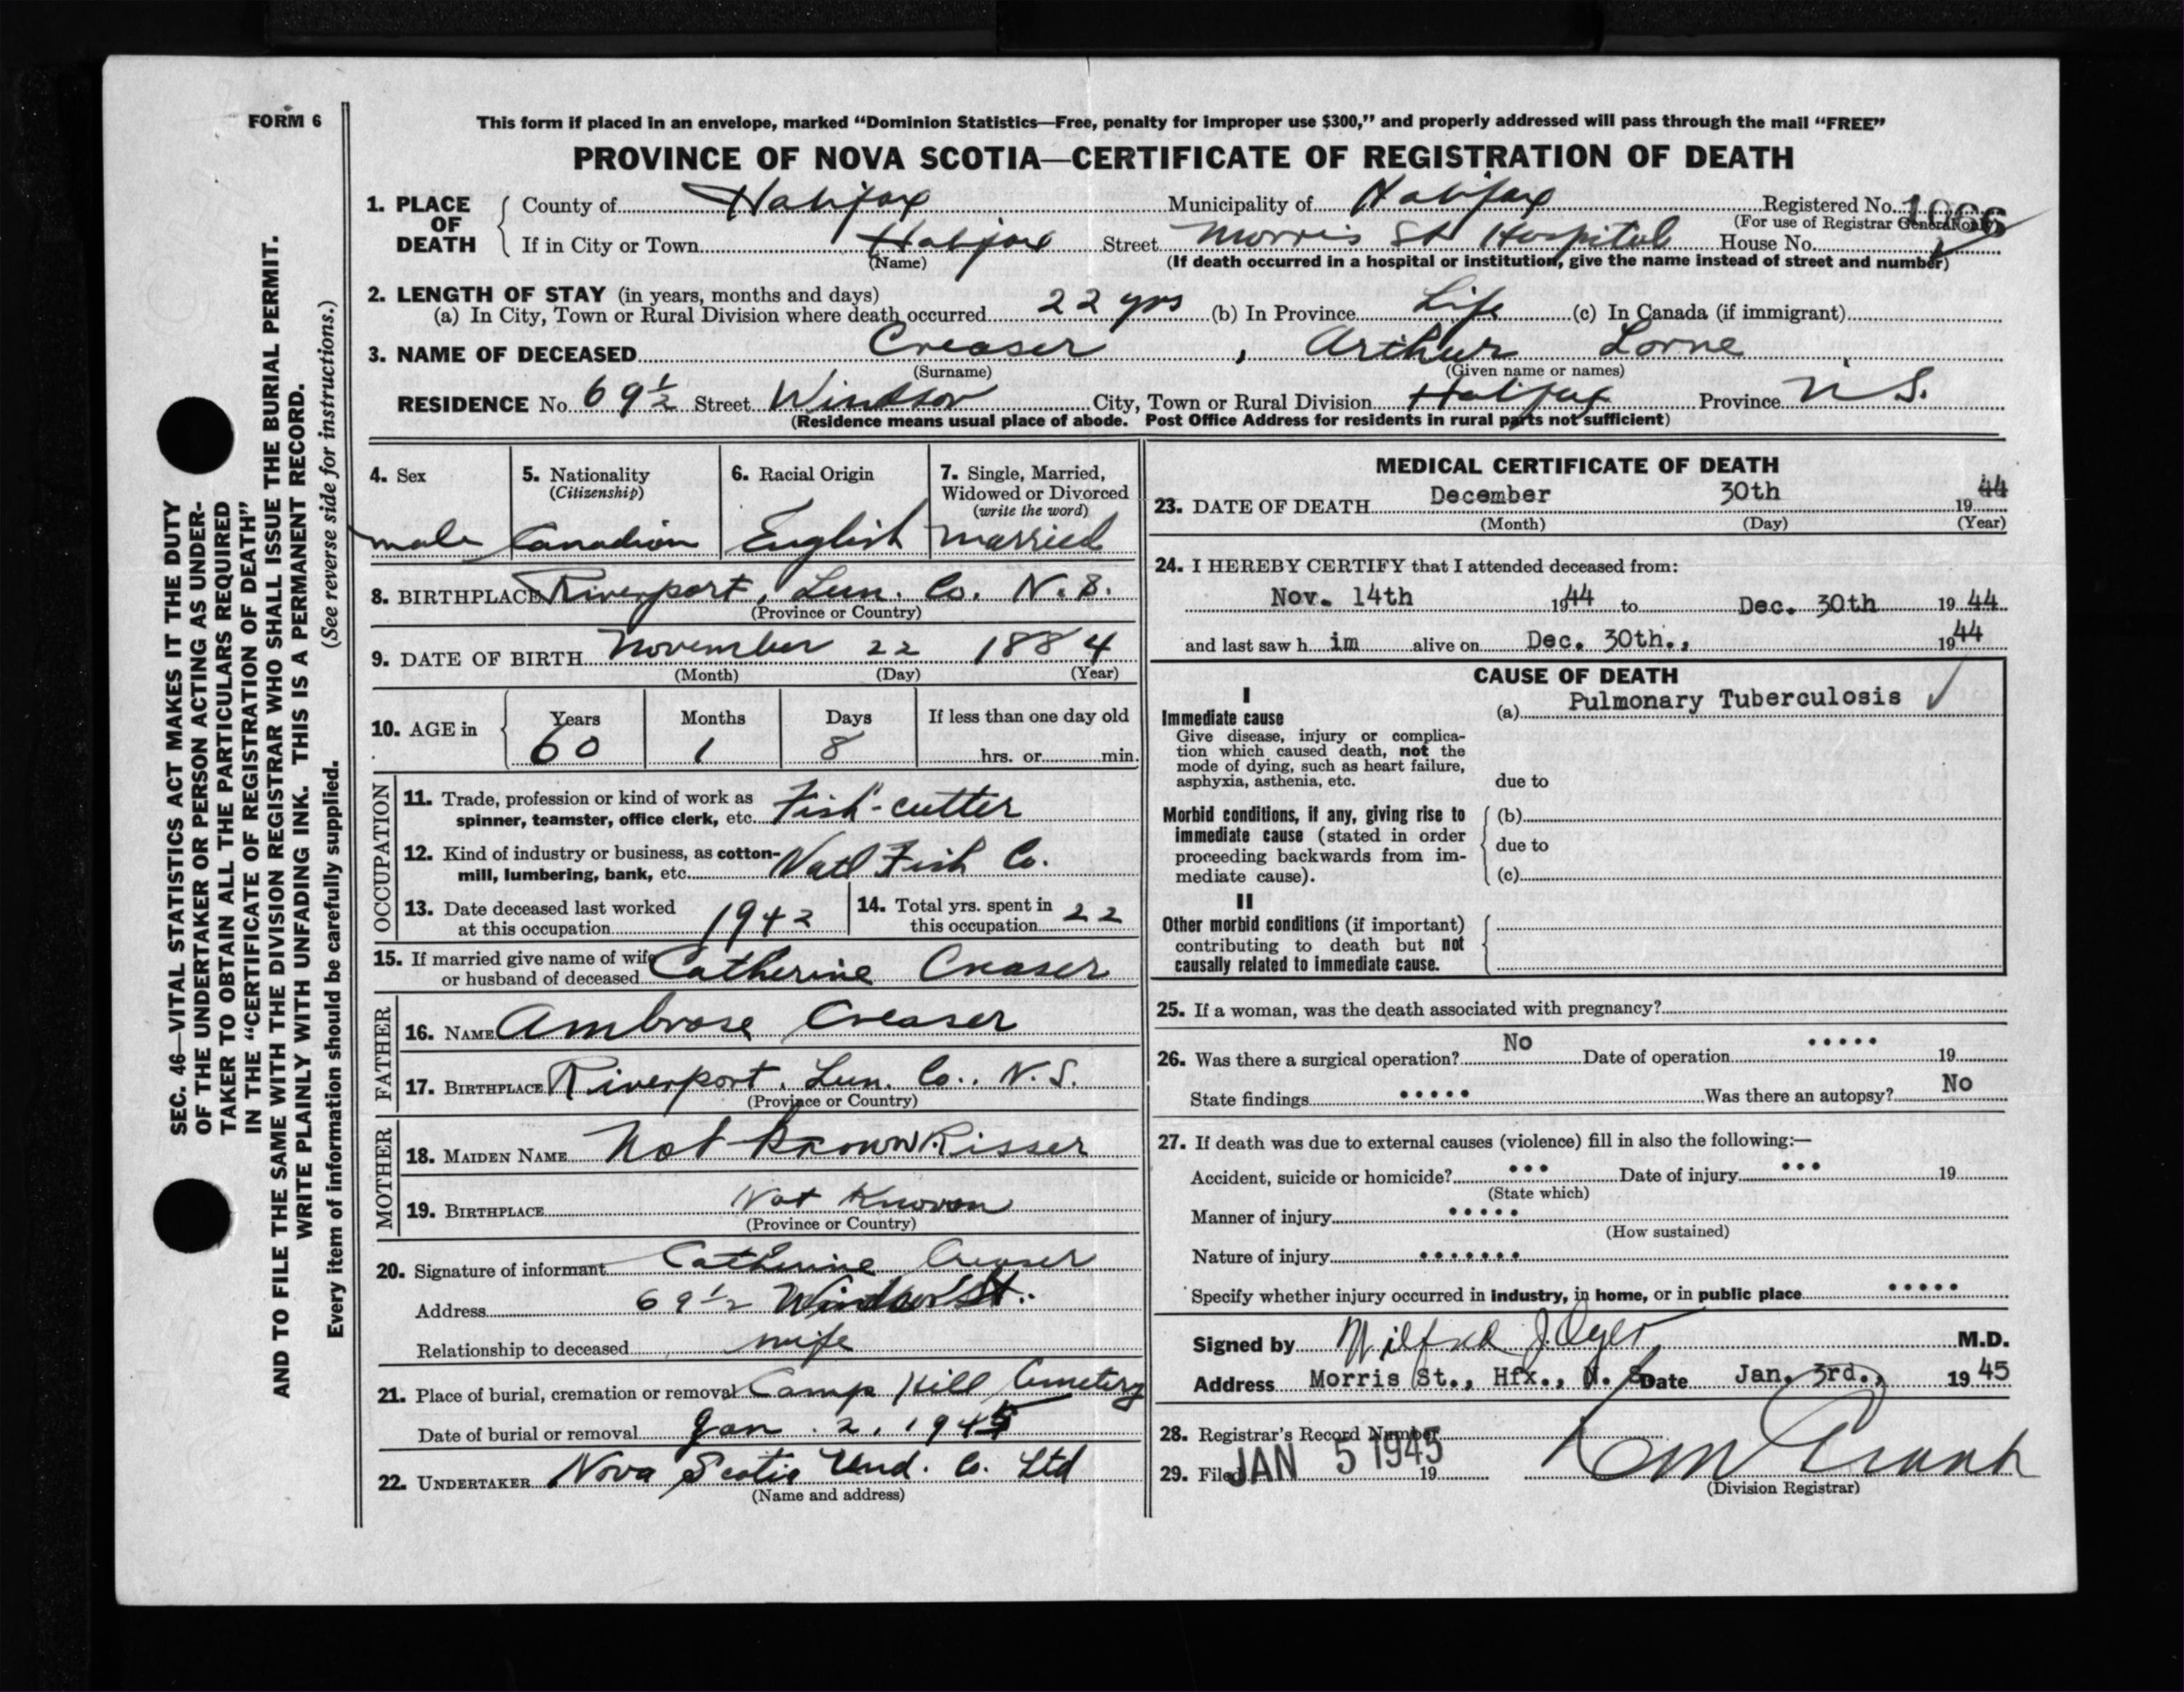 FORM 6
This form if placed in an envelope, marked “Dominion Statistics—Free, penalty for improper use $300,” and properly addressed will pass through the mail “FREE”
PROVINCE OF NOVA SCOTIA—CERTIFICATE OF REGISTRATION OF DEATH
SEC. 46—VITAL STATISTICS ACT MAKES IT THE DUTY
OF THE UNDERTAKER OR PERSON ACTING AS UNDER-
TAKER TO OBTAIN ALL THE PARTICULARS REQUIRED
IN THE “CERTIFICATE OF REGISTRATION OF DEATH”
AND TO FILE THE SAME WITH THE DIVISION REGISTRAR WHO SHALL ISSUE THE BURIAL PERMIT.
WRITE PLAINLY WITH UNFADING INK. THIS IS A PERMANENT RECORD.
Every item of information should be carefully supplied. (See reverse side for instructions.)
1. PLACE OF DEATH
County of Halifax Municipality of Halifax Registered No. 1066
(For use of Registrar General only)
If in City or Town Halifax Street Morris St Hospital House No.
(Name) (If death occurred in a hospital or institution, give the name instead of street and number)
2. LENGTH OF STAY (in years, months and days)
(a) In City, Town or Rural Division where death occurred 22 yrs (b) In Province Life (c) In Canada (if immigrant)
3. NAME OF DECEASED Creaser, Arthur Lorne
(Surname) (Given name or names)
RESIDENCE No. 69½ Street Windsor City, Town or Rural Division Halifax Province N S.
(Residence means usual place of abode. Post Office Address for residents in rural parts not sufficient)
4. Sex male
5. Nationality (Citizenship) Canadian
6. Racial Origin English
7. Single, Married, Widowed or Divorced (write the word) married
8. BIRTHPLACE Riverport, Lun. Co. N.S.
(Province or Country)
9. DATE OF BIRTH November 22 1884
(Month) (Day) (Year)
10. AGE in Years Months Days If less than one day old
60 1 8 hrs. or min.
OCCUPATION
11. Trade, profession or kind of work as
spinner, teamster, office clerk, etc. Fish-cutter
12. Kind of industry or business, as cotton-
mill, lumbering, bank, etc. Natl Fish Co.
13. Date deceased last worked
at this occupation 1942
14. Total yrs. spent in
this occupation 22
15. If married give name of wife
or husband of deceased Catherine Creaser
FATHER
16. NAME Ambrose Creaser
17. BIRTHPLACE Riverport, Lun. Co., N.S.
(Province or Country)
MOTHER
18. MAIDEN NAME Not Known Risser
19. BIRTHPLACE Not Known
(Province or Country)
20. Signature of informant Catherine Creaser
Address 69½ Windsor St.
Relationship to deceased wife
21. Place of burial, cremation or removal Camp Hill Cemetery
Date of burial or removal Jan. 2, 1945
22. UNDERTAKER Nova Scotia Und. Co. Ltd
(Name and address)
MEDICAL CERTIFICATE OF DEATH
23. DATE OF DEATH December 30th 19 44
(Month) (Day) (Year)
24. I HEREBY CERTIFY that I attended deceased from:
Nov. 14th 1944 to Dec. 30th 19 44
and last saw h im alive on Dec. 30th., 1944
CAUSE OF DEATH
I
Immediate cause (a) Pulmonary Tuberculosis
Give disease, injury or complica-
tion which caused death, not the
mode of dying, such as heart failure,
asphyxia, asthenia, etc. due to
Morbid conditions, if any, giving rise to (b)
immediate cause (stated in order due to
proceeding backwards from im-
mediate cause). (c)
II
Other morbid conditions (if important)
contributing to death but not
causally related to immediate cause.
25. If a woman, was the death associated with pregnancy?
26. Was there a surgical operation? No Date of operation ..... 19
State findings ..... Was there an autopsy? No
27. If death was due to external causes (violence) fill in also the following:—
Accident, suicide or homicide? ... Date of injury ... 19
(State which)
Manner of injury .....
(How sustained)
Nature of injury .......
Specify whether injury occurred in industry, in home, or in public place .....
Signed by Wilfred J. M.D.
Address Morris St., Hfx., N. S. Date Jan. 3rd., 19 45
28. Registrar's Record Number
29. Filed JAN 5 1945 19
(Division Registrar)